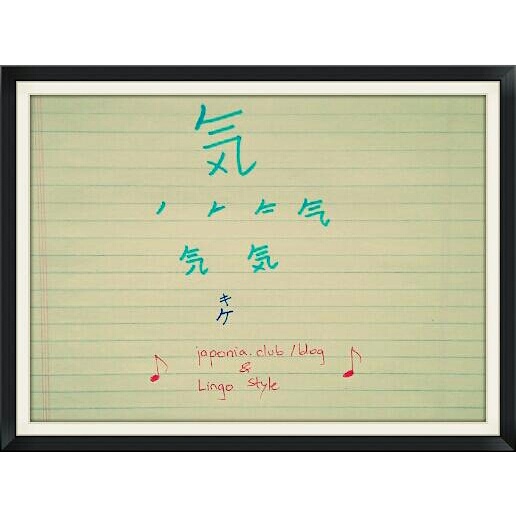 気
ノ 𠂉 气
気
キ
ケ
japonia.club/blog
&
Lingo Style